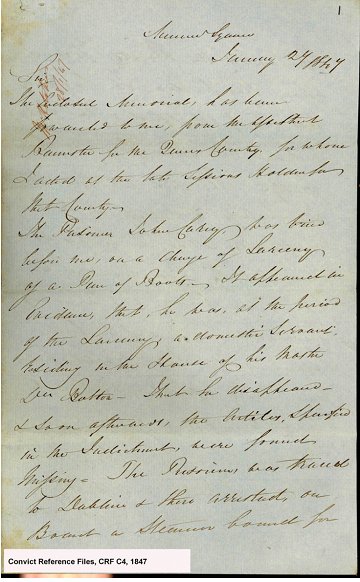 1
January 27 1847
Sir
The enclosed Memorial, has been
forwarded to me, from the Assistant
Barrister for the Queens County, for whom
I acted at the late Sessions Holden for
that County—
The Prisoner John Carey was tried
before me, on a Charge of Larceny
of a Pair of Boots— It appeared in
Evidence, that, he was, at the period
of the Larceny, a domestic Servant,
residing in the House of his Master
— That he disappeared—
& soon afterwards, the Articles, Specified
in the Indictment, were found
Missing— The Prisoner, was traced
to Dublin & there arrested, on
Board a Steamer bound for
Convict Reference Files, CRF C4, 1847